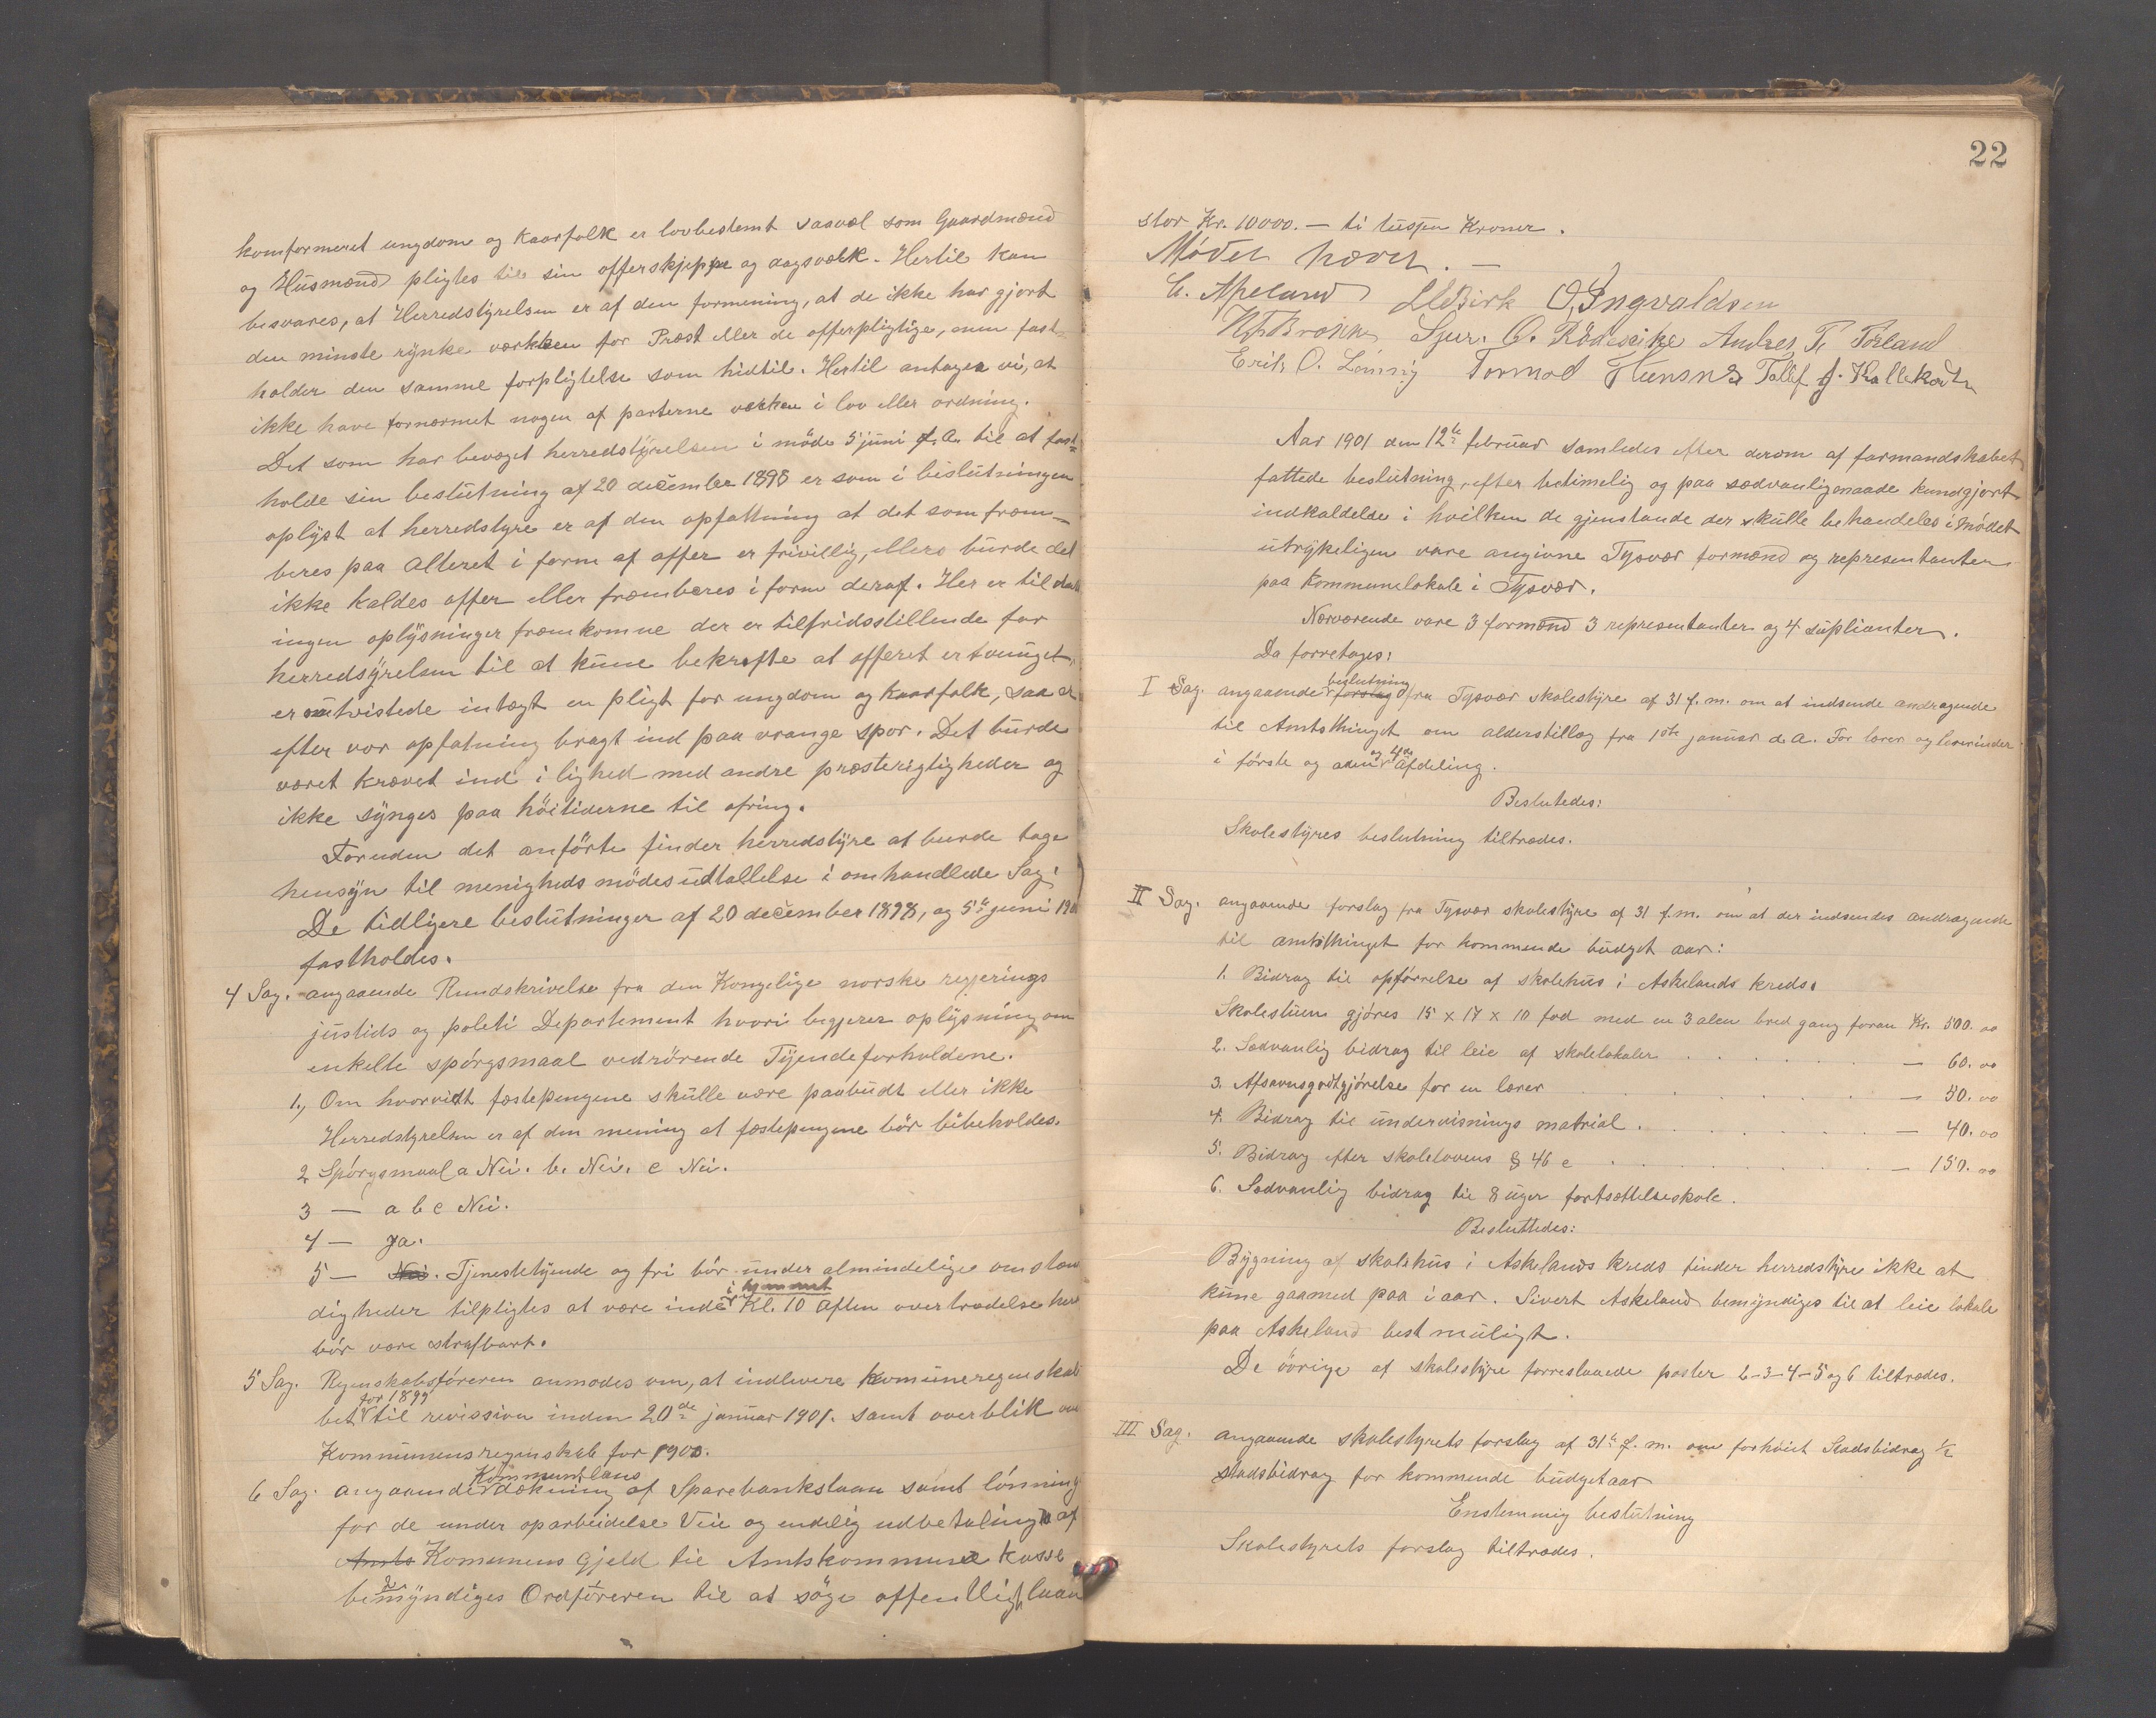 komformeret ungdom og Kaarfolk er lovbestemt saavæl som Gaardmænd
og Husmænd pligtes til sin offerskjeppe og dagsværk. Hertil kan
besvares, at Herredstyrelsen er af den formening, at de ikke har gjort
den minste rynke værken for Præst eller de offerpligtige, men fast-
holder den samme forpligtelse som hidtil. Hertil antager vi, at
ikke have fornærmet nogen af parterne værken i lov eller ordning.
Det som har bevæget herredstyrelsen i möde 5 juni f. A. til at fast-
holde sin beslutning af 20 december 1898 er som i beslutningen
oplyst at herredstyre er af den opfattning at det som fræm-
beres paa Alteret i form af offer er frivillig, ellers burde det
ikke kaldes offer eller fræmberes i form deraf. Her er til
ingen oplysninger fræmkomne der er tilfridsstillende for
herredsyrelsen til at kune bekræfte at offeret er tvunget,
er omtvistede intægt en pligt for ungdom og Kaarfolk, saa er
efter vor opfatning bragt ind paa vrange spor. Det burde
været krævet ind i lighed med andre præsterigtigheder og
ikke synges paa höitiderne til ofring.
Foruden det anförte finder herredstyre at burde tage
hensyn til menigheds mödes udtallelse i omhandlede Sag.
De tidligere beslutninger af 20 december 1898, og 5te juni 19
fastholdes.
4 Sag. angaaende Rundskrivelse fra den Kongelige norske regjerings
justids og politi Departement hvori begjerer oplysning om
enkelte spörgsmaal vedrörende Tyendeforholdene.
1., Om hvorvidt fæstepengene skulle være paabudt eller ikke
Herredstyrelsen er af den mening at fæstepengene bör bibeholdes.
2 Spörgsmaal a Nei. b. Nei. c Nei.
3 — a b c Nei.
4 — Ja.
5 — Nei. Tjenestetyende og fri bör under almindelige omstæn
i hjemmet
digheder tilpligtes at være inde Kl. 10 Aften overtrædelse her
bör være strafbart.
5 Sag. Regnskabsföreren anmodes om, at indlevere Komuneregnskab
for 1899
bet til revission inden 20de januar 1901. samt overblik ov
Kommunensregnskab for 1900.
Kommunelaans
6 Sag. angaaende dækning af Sparebankslaan samt lönning
for de under oparbeidelse Veie og endelig udbetaling af
Amts Komunens Gjeld til Amtskommune kasse
bemyndiges Ordföreren til at söge offenlligt laan
22
stor Kr. 10000. — ti tusen Kroner.
Mödet hævet. —
C. Apeland LLBirk O, Ingvaldsen
Sjur. O. Rödseike Andres T. Förland
Erik O. Tormod Tollef J. Kallekodt
Aar 1901 den 12te februar samledes efter derom af formandskabet
fattede beslutning, efter betimelig og paa sædvanligmaade kundgjort
indkaldelse i hvilken de gjenstande der skulle behandeles i mödet
utrykeligen vare angivne Tysvær formænd og representanter
paa Kommunelokale i Tysvær.
Nærværende vare 3 formænd 3 representanter og 4 suplianter.
Da forretoges:
beslutning
I Sag. angaaende forslag fra Tysvær skolestyre af 31 f. m. om at indsende andragende
til Amtsthinget om alderstillæg fra 1ste januar d. A. For lærer og lærerinder
og 4de
i förste og aden Afdeling.
Beslutedes:
Skolestyres beslutning tiltrædes.
II Sag. angaaende forslag fra Tysvær skolestyre af 31 f. m. om at der indsendes andragende
til amtsthinget for kommende budget aar:
1. Bidrag til opförrelse af skolehus i Askelands kreds.
Skolestuen gjöres 15 x 17 x 10 fod med en 3 alen bred gang foran Kr. 500. oo
2. Sædvanlig bidrag til leie af skolelokaler . . . . . — 60. oo
3. Afsavnsgodtgjörelse for en lærer . . . . . — 50. oo
4. Bidrag til undervisnings matrial . . . . . — 40. oo
5. Bidrag efter skolelovens § 46 c . . . . . — 150. oo
6. Sædvanlig bidrag til 8 uger fortsættelseskole.
Besluttedes:
Bygning af skolehus i Askelands kreds finder herredstyre ikke at
kune gaamed paa i aar. Sivert Askeland bemyndiges til at leie lokale
paa Askeland best muligt.
De övrige af skolestyre forreslaaede poster 2-3-4-5 og 6 tiltrædes.
III Sag. angaaende skolestyrets forslag af 31te f. m. om forhöiet Stadsbidrag 1/2
stadsbidrag for kommende budgetaar
Enstemmig beslutning
Skolestyrets forslag tiltrædes.